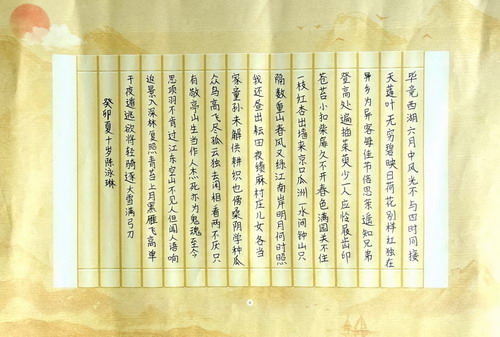 毕竟西湖六月中风光不与四时同接
天莲叶无穷碧映日荷花别样红独在
异乡为异客每佳节倍思亲遥知兄弟
登高处遍插茱萸少一人应怜屐齿印
苍苔小扣柴扉久不开春色满园关不住
一枝红杏出墙来京口瓜洲一水间钟山只
隔数重山春风又绿江南岸明月何时照
我还昼出耘田夜绩麻村庄儿女各当
家童孙未解供耕织也傍桑阴学种瓜
众鸟高飞尽孤云独去闲相看两不厌只
有敬亭山生当作人杰死亦为鬼雄至今
思项羽不肯过江东空山不见人但闻人语响
返景入深林复照青苔上月黑雁飞高单
于夜遁逃欲将轻骑逐大雪满弓刀
癸卯夏十岁陈泳琳